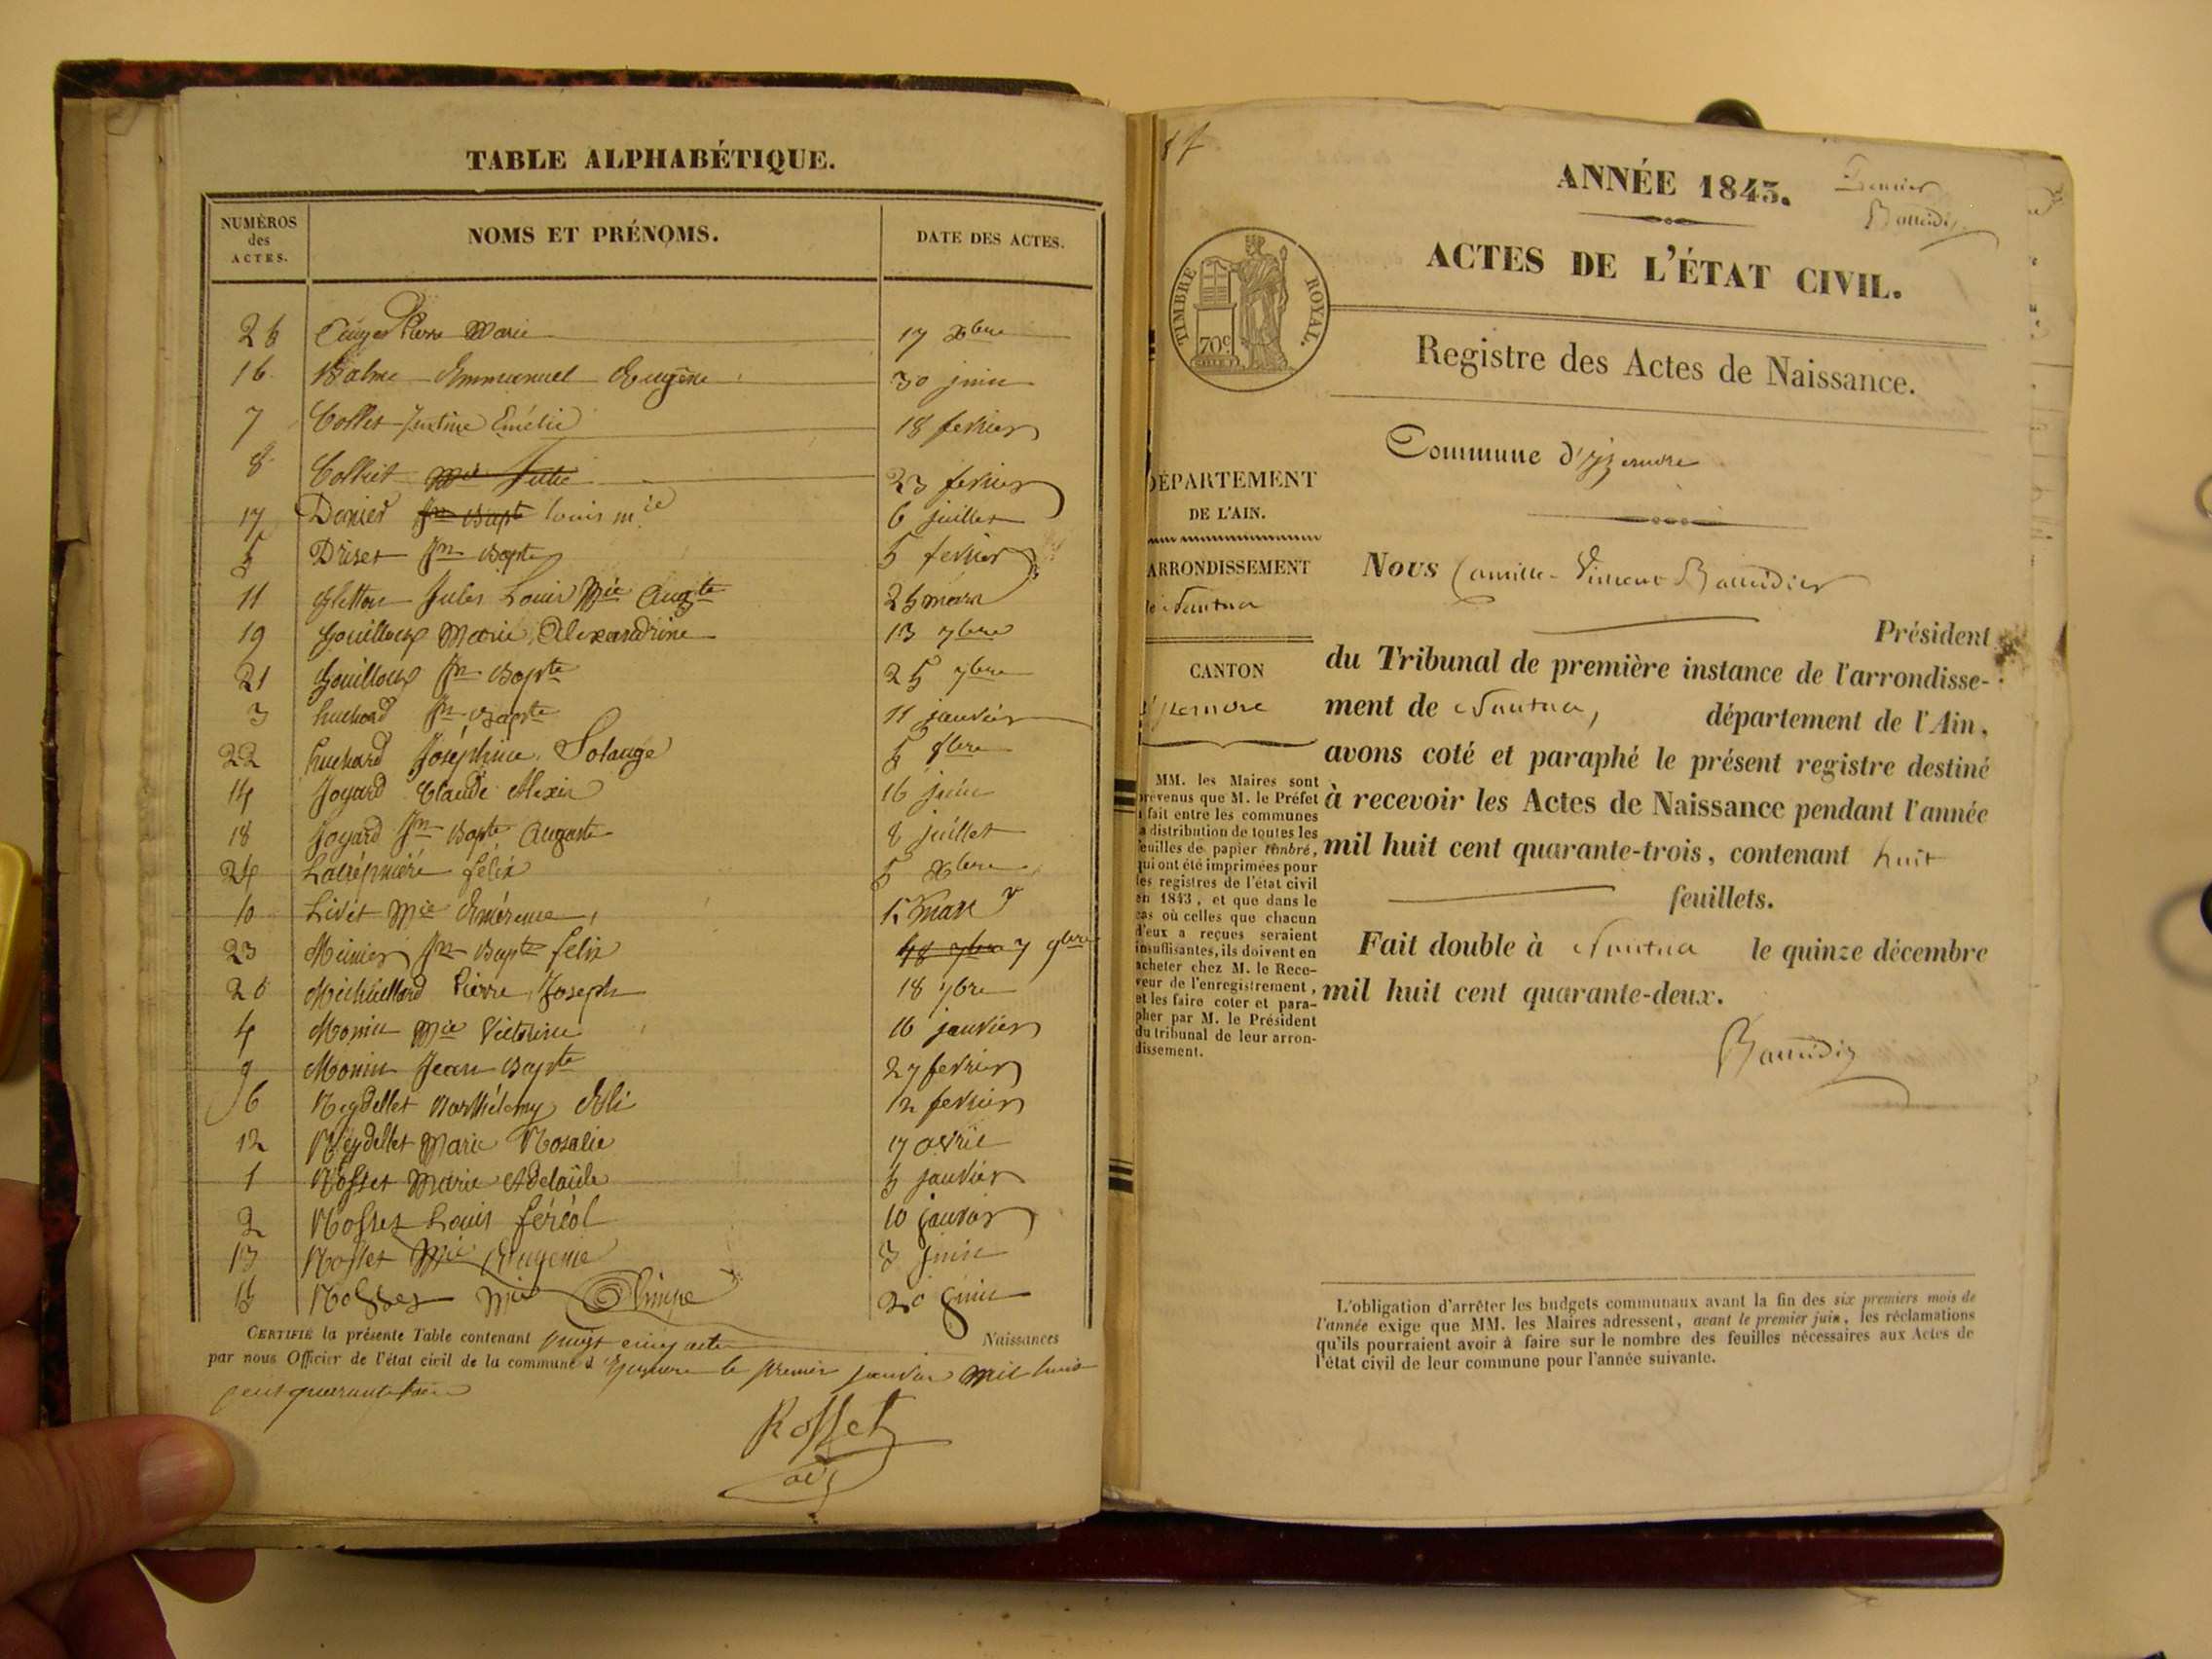 TABLE ALPHABÉTIQUE.
NUMÉROS des ACTES. NOMS ET PRÉNOMS. DATE DES ACTES.
Pierre Marie 17 Xbre
16 Balme Emmanuel Eugène 30 juin
7 Collet Justine Emélie 18 fevrier
8 Collet Mie Julie 23 fevrier
17 Danier Jn Bapte Louis Mie 6 juillet
5 Druet Jn Bapte 5 fevrier
11 Jules Louis Mie Augte 25 mars
19 Gouilloux Marie Alexandrine 13 7bre
21 Gouilloux Jn Bapte 25 7bre
3 huchard Jn Bapte 11 janvier
22 huchard Joséphine Solange 5 8bre
14 Joyard Claude Alexis 16 juin
18 Joyard Jn Bapte Auguste 8 juillet
24 félix 5 Xbre
10 Livet Mie Emérence
23 Meunier Jn Bapte félix 18 7bre 7 9bre
20 Michaillard Pierre Joseph 18 7bre
4 Monin Mie Victorine 16 janvier
9 Monin Jean Bapte 27 fevrier
6 Reydellet Barthélemy Eli 12 fevrier
12 Reydellet Marie Rosalie 17 avril
1 Rosset Marie Adelaïde 5 janvier
2 Rosset Louis féréol 10 janvier
13 Rosset Mie Eugenie 3 juin
15 Rosset Mie 20 juin
CERTIFIÉ la présente Table contenant vingt cinq actes Naissances
par nous Officier de l'état civil de la commune d' Izernore le premier janvier mil huit
cent quarante trois
Rosset
adj
ANNÉE 1843.
Premier
Baudin
ACTES DE L'ÉTAT CIVIL.
TIMBRE ROYAL.
70c
Registre des Actes de Naissance.
Commune d'Izernore
DÉPARTEMENT
DE L'AIN.
ARRONDISSEMENT
de Nantua
CANTON
d'Izernore
MM. les Maires sont
prévenus que M. le Préfet
a fait entre les communes
la distribution de toutes les
feuilles de papier timbré,
qui ont été imprimées pour
les registres de l'état civil
en 1843, et que dans le
cas où celles que chacun
d'eux a reçues seraient
insuffisantes, ils doivent en
acheter chez M. le Rece-
veur de l'enregistrement,
et les faire coter et para-
pher par M. le Président
du tribunal de leur arron-
dissement.
Nous Camille Vincent
Président
du Tribunal de première instance de l'arrondisse-
ment de Nantua, département de l'Ain,
avons coté et paraphé le présent registre destiné
à recevoir les Actes de Naissance pendant l'année
mil huit cent quarante-trois, contenant huit
feuillets.
Fait double à Nantua le quinze décembre
mil huit cent quarante-deux.
L'obligation d'arrêter les budgets communaux avant la fin des six premiers mois de
l'année exige que MM. les Maires adressent, avant le premier juin, les réclamations
qu'ils pourraient avoir à faire sur le nombre des feuilles nécessaires aux Actes de
l'état civil de leur commune pour l'année suivante.